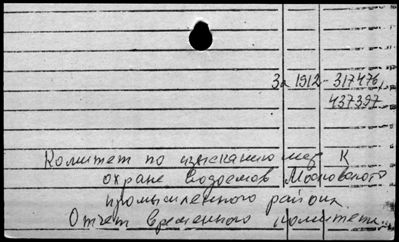 За 1912 - 317476,
437397
Комитет по изысканию мер к
охране водоемов Московского
промышленного района.
Отчет временного комитета...